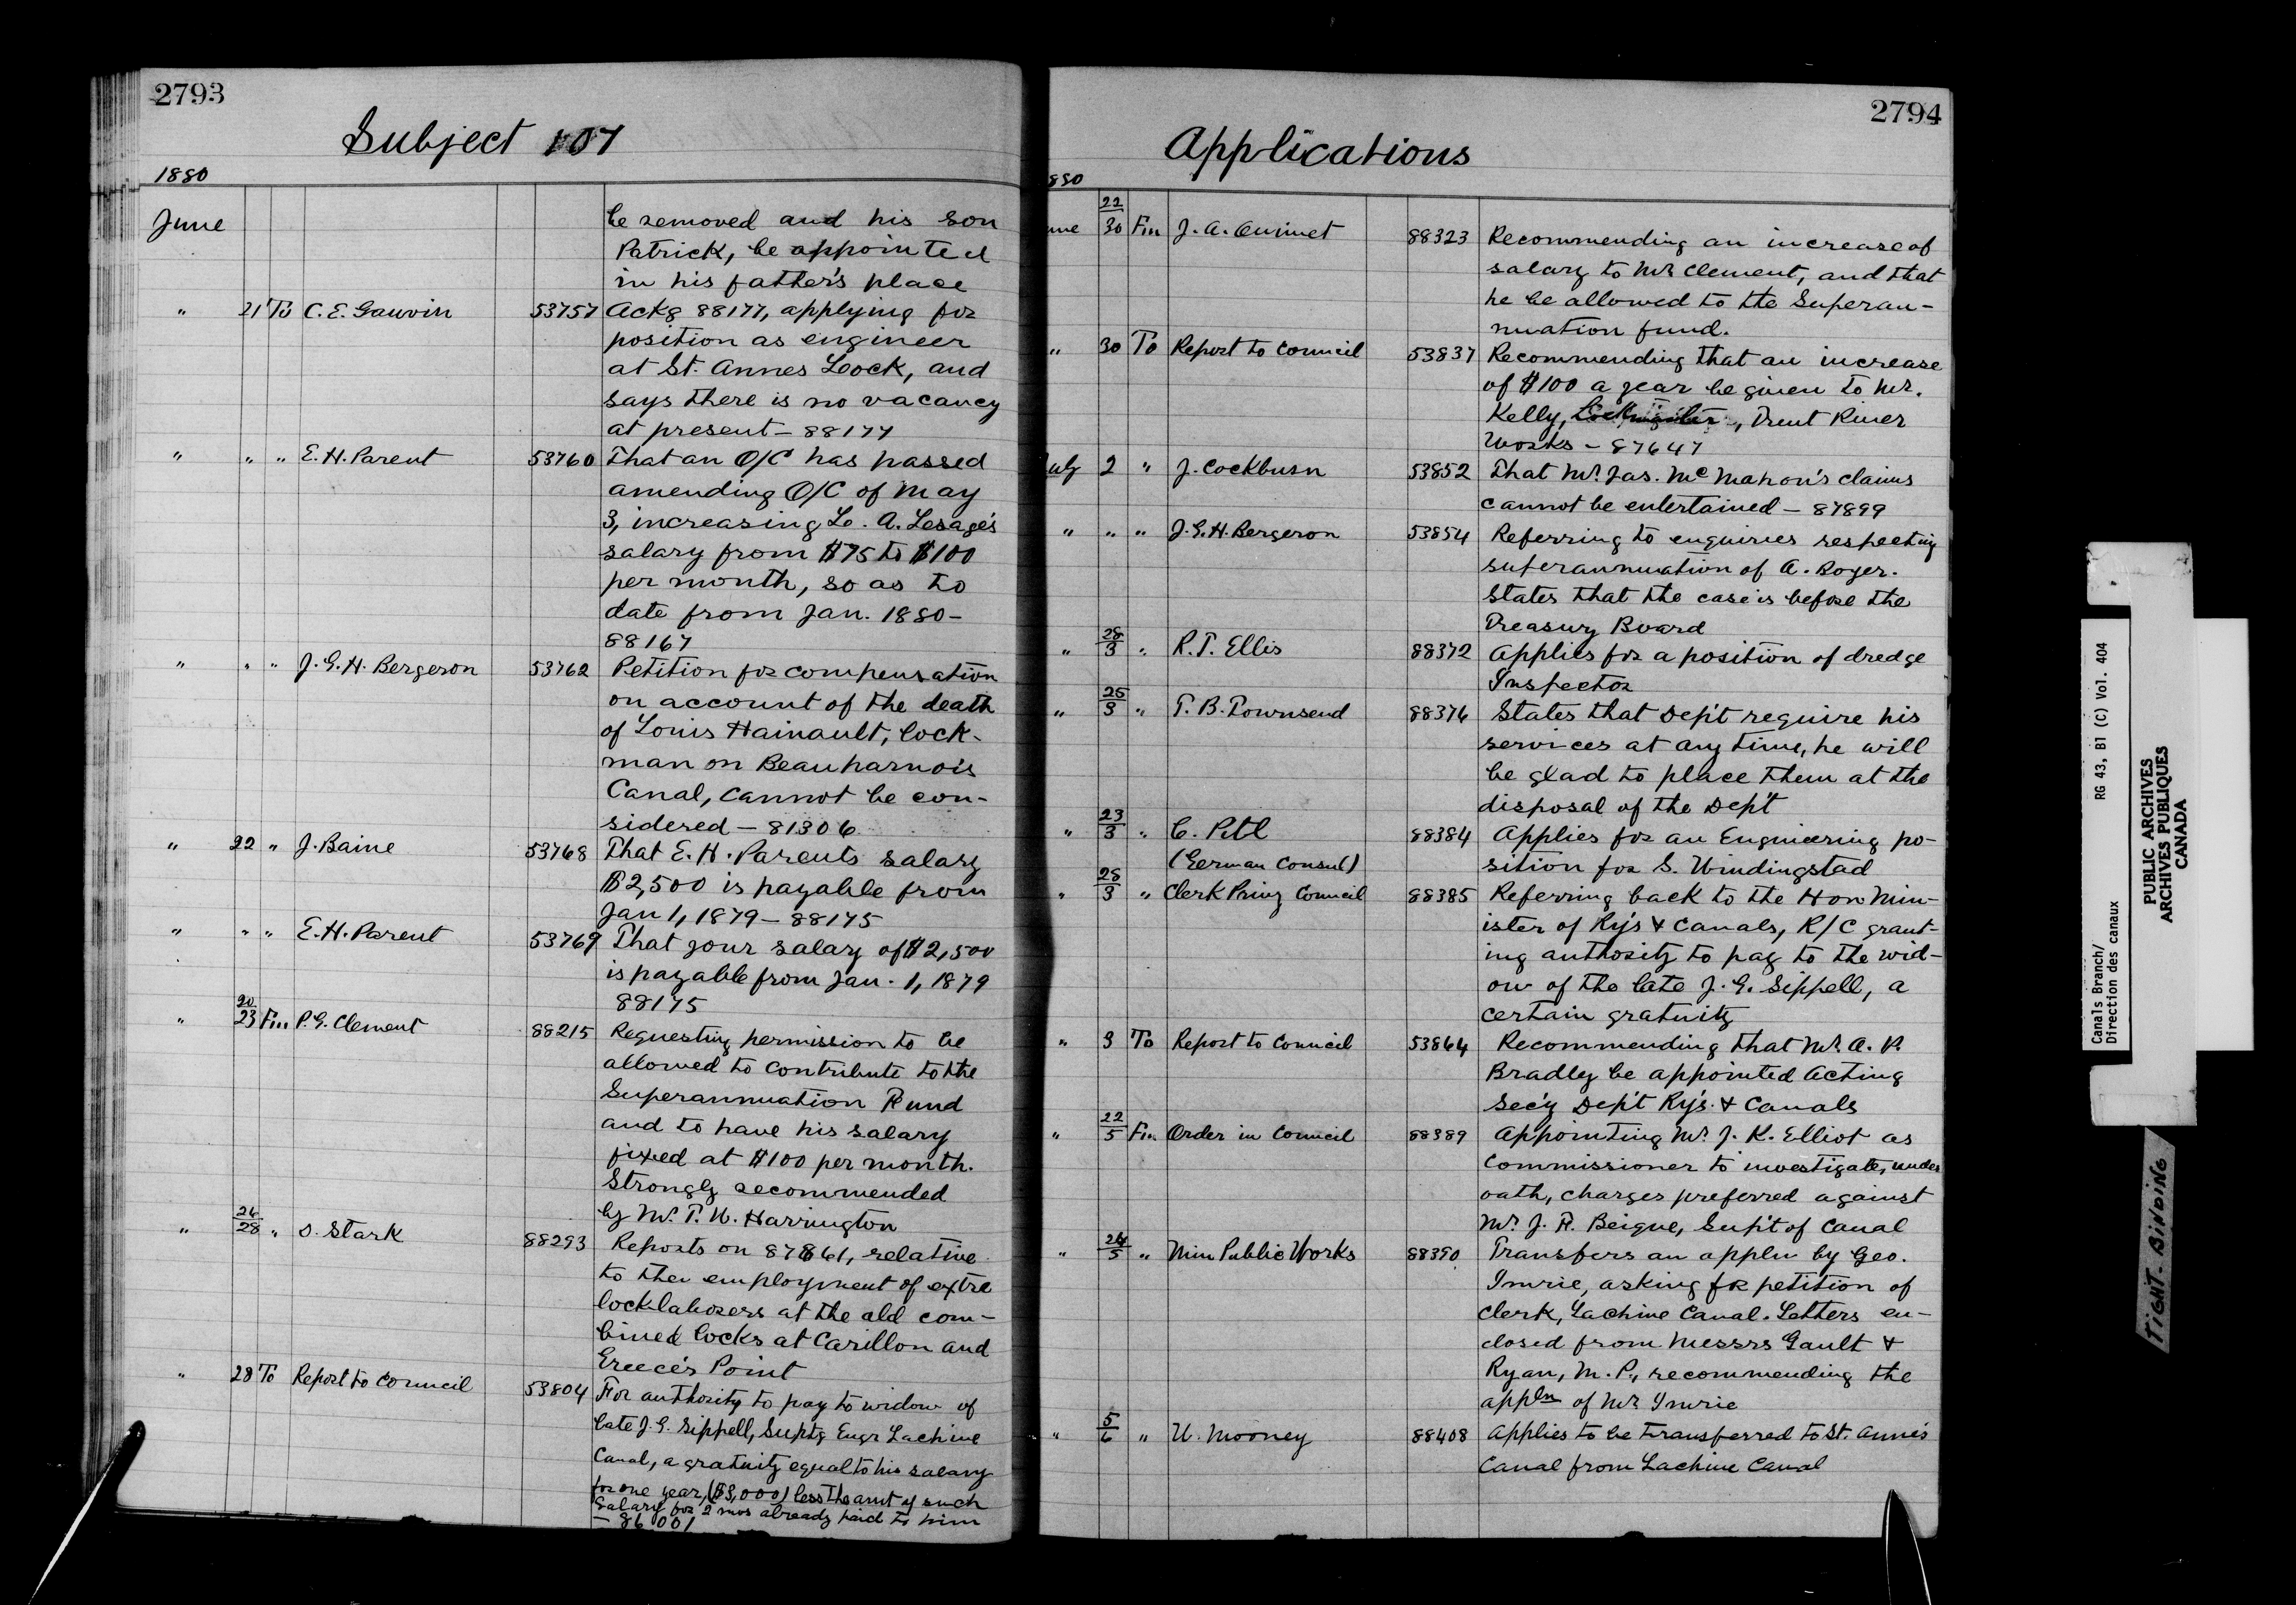 2793
Subject 107
1880
June
be removed and his son
Patrick, be appointed
in his father's place
" 21 To C. E. Gauvin 53757 Ackg 88177, applying for
position as engineer
at St. Annes Lock, and
says there is no vacancy
at present - 88177
" " " E. H. Parent 53760 That an O/C has passed
amending O/C of May
3, increasing L. A. Lesage's
salary from $75 to $100
per month, so as to
date from Jan. 1880 -
88167
" " " J. G. H. Bergeron 53762 Petition for compensation
on account of the death
of Louis Hainault, lock-
man on Beauharnois
Canal, cannot be con-
sidered - 81306
" 22 " J. Baine 53768 That E. H. Parents salary
$2,500 is payable from
Jan 1, 1879 - 88175
" " " E. H. Parent 53769 That your salary of $2,500
is payable from Jan. 1, 1879
88175
" 20/23 Fm P. G. Clement 88215 Requesting permission to be
allowed to contribute to the
Superannuation Fund
and to have his salary
fixed at $100 per month.
Strongly recommended
by Mr. T. W. Harrington
" 26/28 " S. Stark 88293 Reports on 87861, relative
to the employment of extra
lock laborers at the old com-
bined locks at Carillon and
Greece's Point
" 28 To Report to Council 53804 For authority to pay to widow of
late J. G. Sippell, Suptg Engr Lachine
Canal, a gratuity equal to his salary
for one year, ($3,000) less the amt of such
Salary for 2 mos already paid to him
- 86001
2794
Applications
880
une 22/30 Fm J. A. Ouimet 88323 Recommending an increase of
salary to Mr Clement, and that
he be allowed to the Superan-
nuation fund.
" 30 To Report to Council 53837 Recommending that an increase
of $100 a year be given to Mr.
Kelly, Lockmaster, Trent River
Works - 87647
uly 2 " J. Cockburn 53852 That Mr. Jas. McMahon's claims
cannot be entertained - 87899
" " " J. G. H. Bergeron 53854 Referring to enquiries respecting
superannuation of A. Boyer.
States that the case is before the
Treasury Board
" 28/3 " R. T. Ellis 88372 Applies for a position of dredge
Inspector
" 25/3 " T. B. Townsend 88376 States that Dep't require his
services at any time, he will
be glad to place them at the
disposal of the Dep't
" 23/3 " C. Pitl 88384 Applies for an Engineering po-
(German Consul) sition for S. Windingstad
" 28/3 " Clerk Privy Council 88385 Referring back to the Hon Min-
ister of Ry's & Canals, R/C grant-
ing authority to pay to the wid-
ow of the late J. G. Sippell, a
certain gratuity
" 3 To Report to Council 53864 Recommending that Mr. A. P.
Bradley be appointed Acting
Sec'y Dep't Ry's. & Canals
" 22/5 Fm Order in Council 88389 Appointing Mr. J. K. Elliot as
Commissioner to investigate, under
oath, charges preferred against
Mr. J. R. Beique, Sup't of Canal
" 24/5 " Min Public Works 88390 Transfers an appln by Geo.
Imrie, asking for petition of
Clerk, Lachine Canal. Letters en-
closed from Messrs Gault &
Ryan, M. P., recommending the
appln of Mr Imrie
" 5/6 " W. Mooney 88408 Applies to be transferred to St. Anne's
Canal from Lachine Canal
Canals Branch/ RG 43, B1 (C) Vol. 404
Direction des canaux
PUBLIC ARCHIVES
ARCHIVES PUBLIQUES
CANADA
TIGHT-BINDING